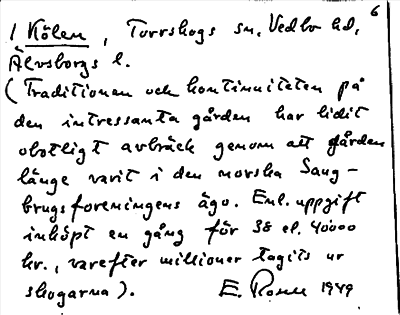 6
1 Kölen, Torrskogs sn, Vedbo hd,
Älvsborgs l.
(Traditionen och kontinuiteten på
den intressanta gården har lidit
obotligt avbräck genom att gården
länge varit i den norska Saug-
brugsforeningens ägo. Enl. uppgift
inköpt en gång för 38 el. 40000
kr., varefter millioner tagits ur
skogarna). E. Rosen 1949